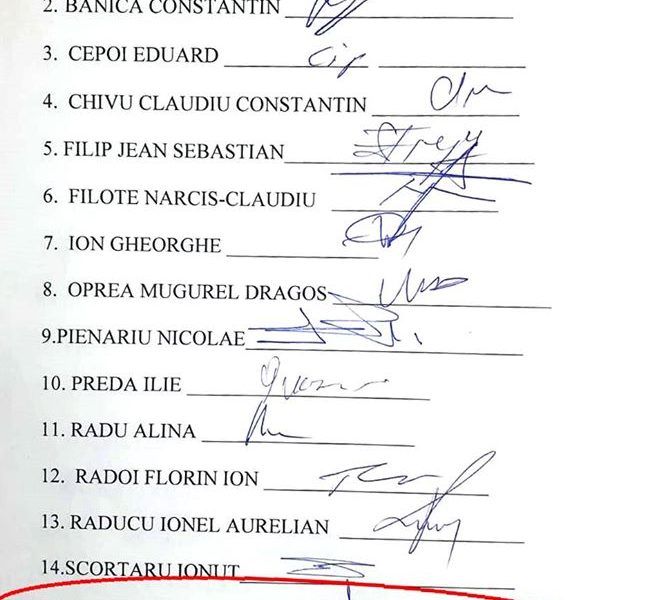 2. BANICA CONSTANTIN
3. CEPOI EDUARD
4. CHIVU CLAUDIU CONSTANTIN
5. FILIP JEAN SEBASTIAN
6. FILOTE NARCIS-CLAUDIU
7. ION GHEORGHE
8. OPREA MUGUREL DRAGOS
9.PIENARIU NICOLAE
10. PREDA ILIE
11. RADU ALINA
12. RADOI FLORIN ION
13. RADUCU IONEL AURELIAN
14.SCORTARU IONUT